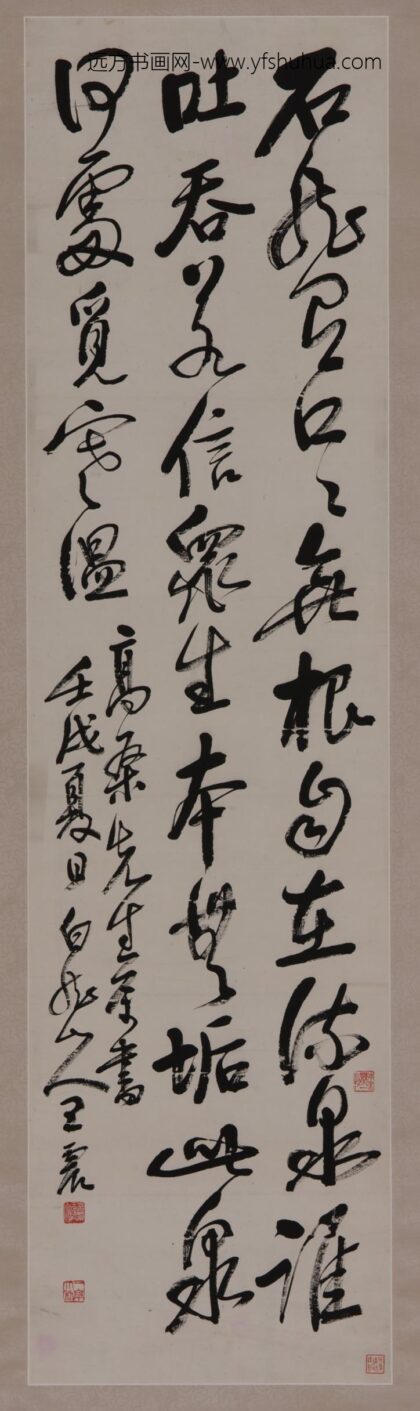 远方书画网-www.yfshuhua.com
石龍有口々無根自在流泉誰
吐吞若信眾生本無垢此泉
何處覓寒温
高桑先生屬書
壬戌夏日白龍山人王震